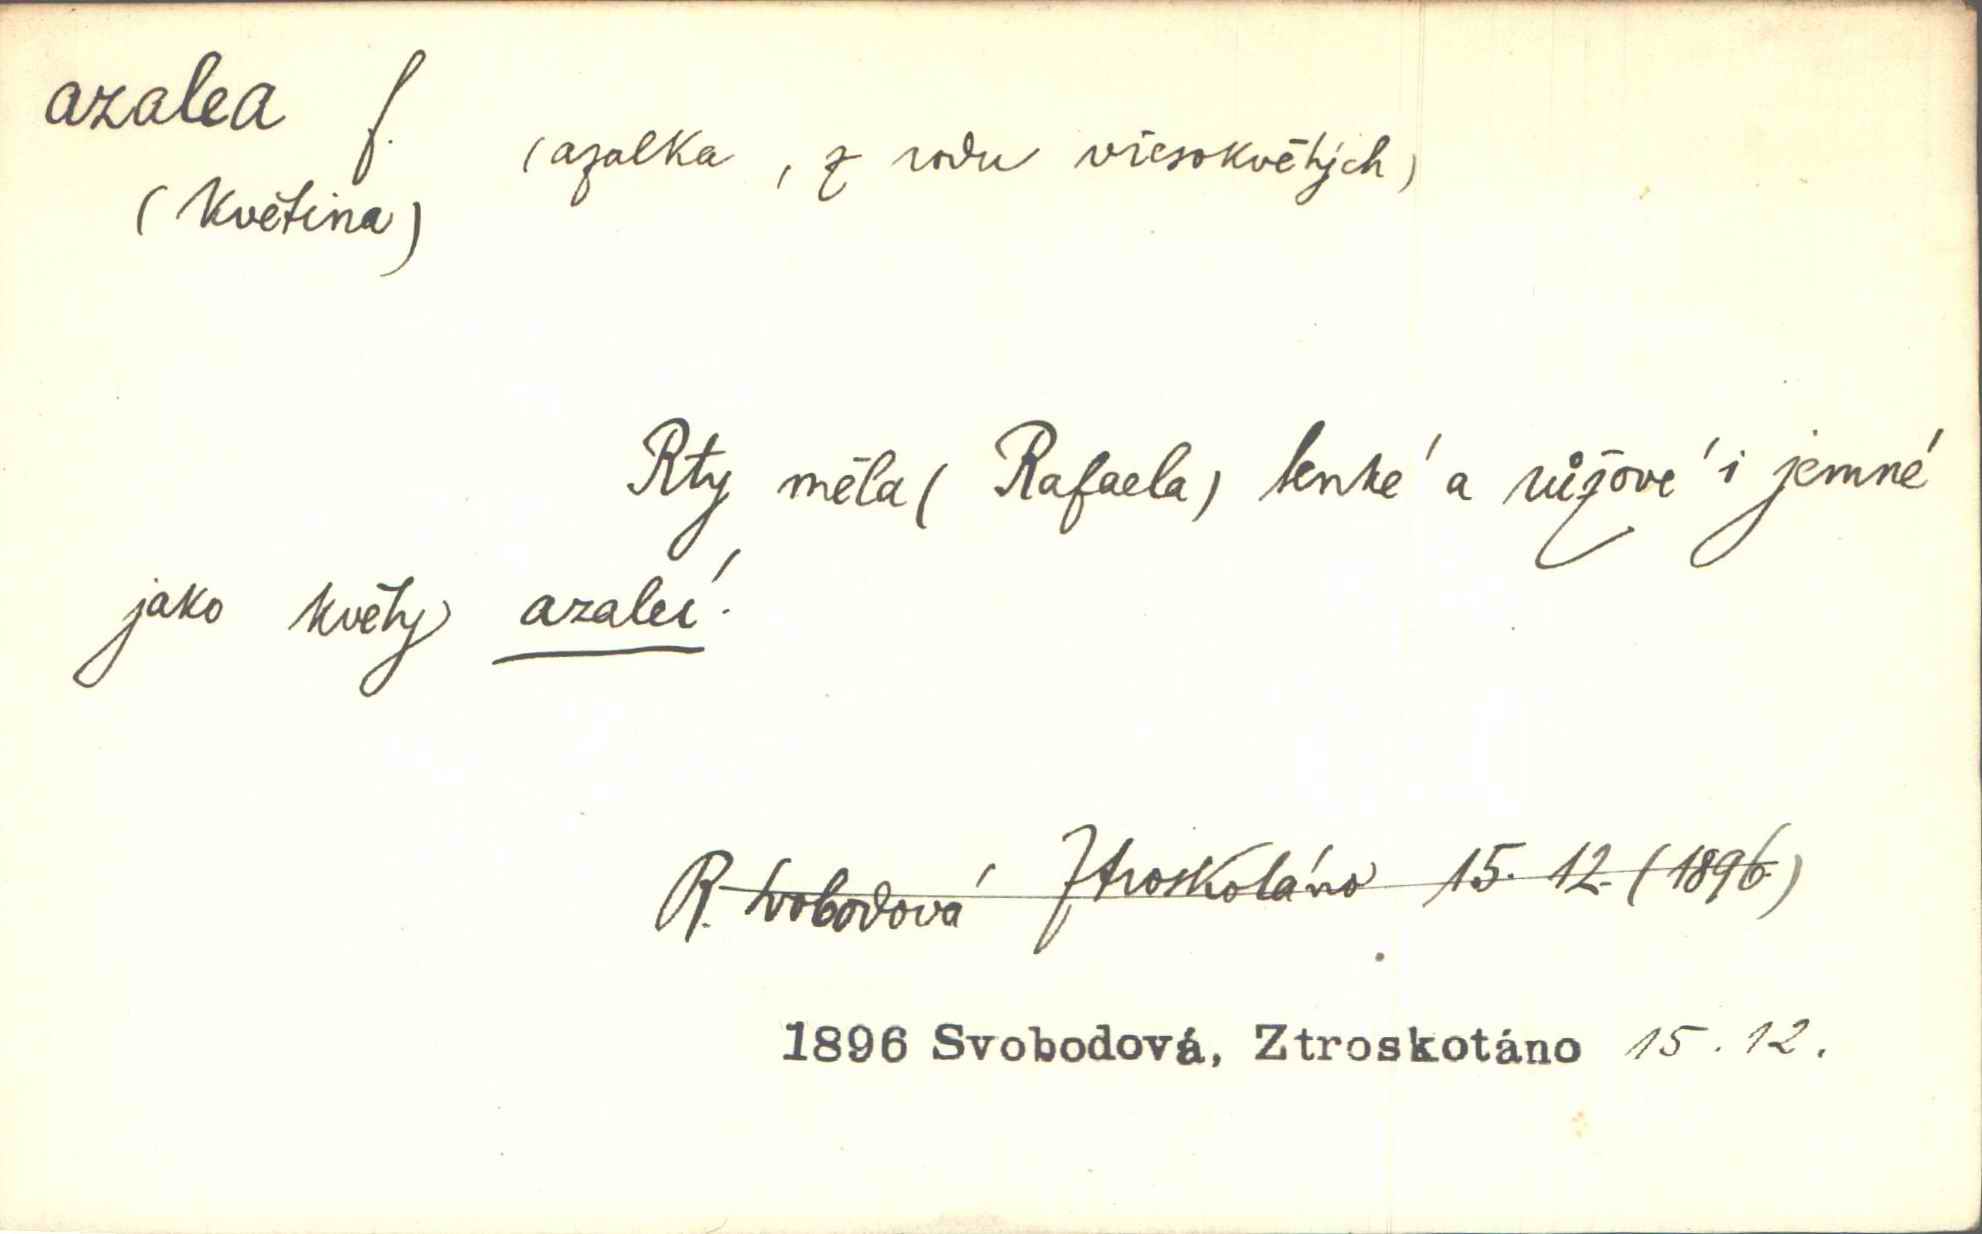 azalea f.
(azalka, z rodu vřesokvětých)
(květina)
Rty měla (Rafaela) tenké a růžové i jemné
jako květy azaleí.
R. Svobodová Ztroskotáno 15. 12. (1896)
1896 Svobodová, Ztroskotáno 15. 12.